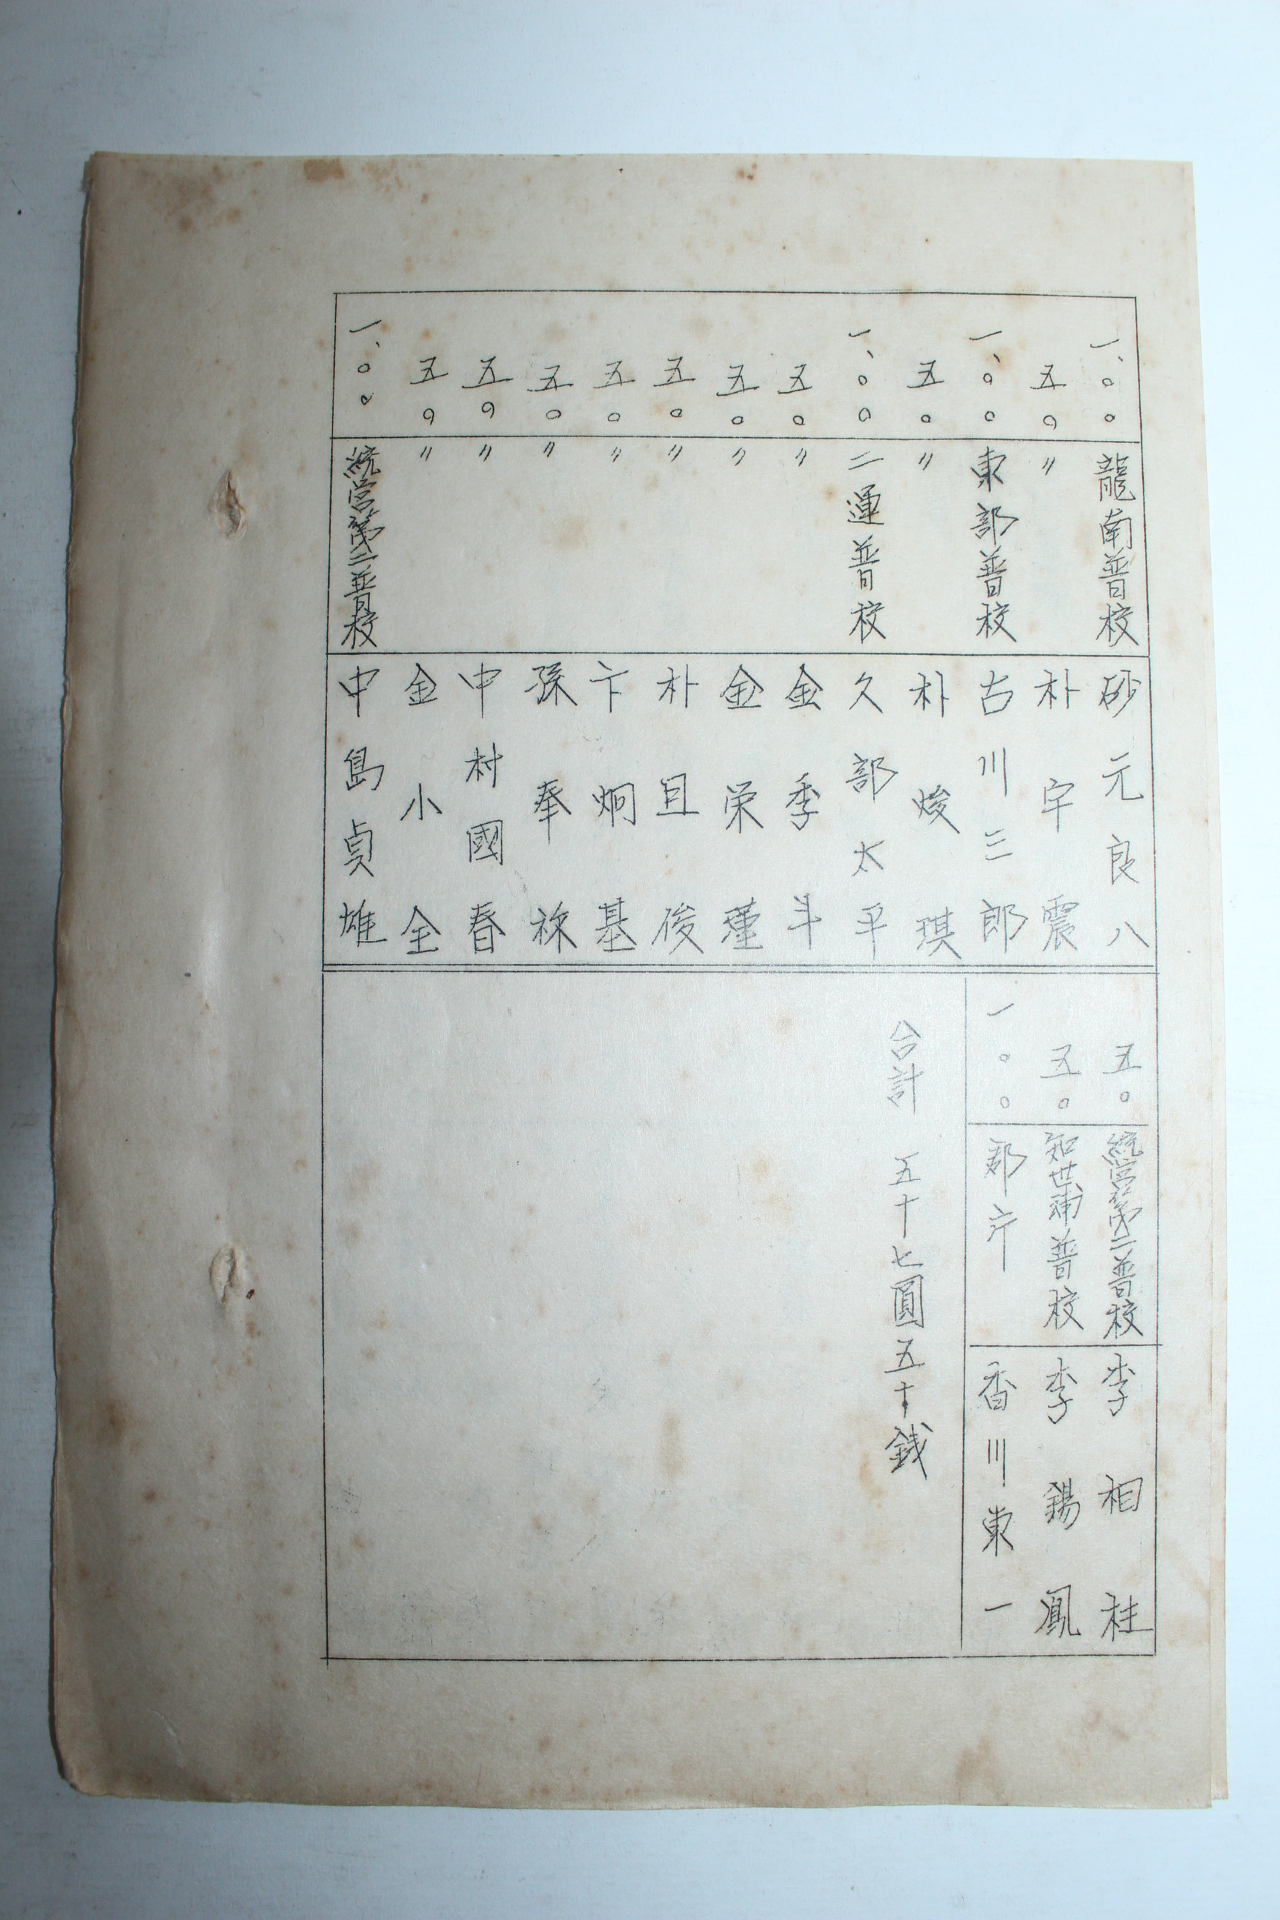 一、〇〇 龍南普校 砂元良八
五〇 〃 朴宇震
一、〇〇 東部普校 古川三郎
五〇 〃 朴焌琪
一、〇〇 二運普校 久部太平
五〇 〃 金季斗
五〇 〃 金栄瑾
五〇 〃 朴且俊
五〇 〃 卞炯基
五〇 〃 孫奉祿
五〇 〃 中村國春
五〇 〃 金小全
一、〇〇 統营第二普校 中島貞雄
五〇 統营第二普校 李相桂
五〇 知世浦普校 李錫鳳
一〇〇 郡庁 香川東一
合計 五十七圓五十銭